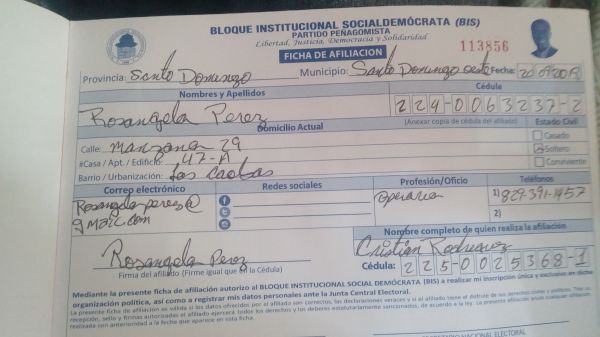 BLOQUE INSTITUCIONAL SOCIALDEMÓCRATA (BIS)
PARTIDO PEÑAGOMISTA
Libertad, Justicia, Democracia y Solidaridad
FICHA DE AFILIACION
113856
Provincia: Santo Domingo Municipio: Santo Domingo oeste Fecha: 20/09/2019
Nombres y Apellidos Cédula
Rosangela Perez 224-0063237-2
Domicilio Actual (Anexar copia de cédula del afiliado) Estado Civil
Calle: manzana 29 Casado
#Casa / Apt. / Edificio: 47-A Soltero
Barrio / Urbanización: Las Caobas Conviviente
Correo electrónico Redes sociales Profesión/Oficio Teléfonos
Rosangelaperez@ Operaria 1) 829-391-1457
gmail.com 2)
Nombre completo de quien realiza la afiliación
Rosangela Perez Cristian Rodriguez
Firma del afiliado (Firme igual que en la Cédula) Cédula: 225-0025368-1
Mediante la presente ficha de afiliación autorizo al BLOQUE INSTITUCIONAL SOCIAL DEMÓCRATA (BIS) a realizar mi inscripción única y exclusiva en dicha
organización política, así como a registrar mis datos personales ante la Junta Central Electoral.
La presente ficha de afiliación es válida si los datos ofrecidos por el afiliado son correctos, las declaraciones veraces y si el afiliado tiene el disfrute de sus derechos civiles y políticos.
recepción, sello y firmas autorizadas el afiliado ejercerá todos los derechos y los deberes estatutariamente sancionados, de acuerdo a la ley. La presente afiliación anula cualquier afiliación
realizada con anterioridad a la fecha que aparece en esta ficha.